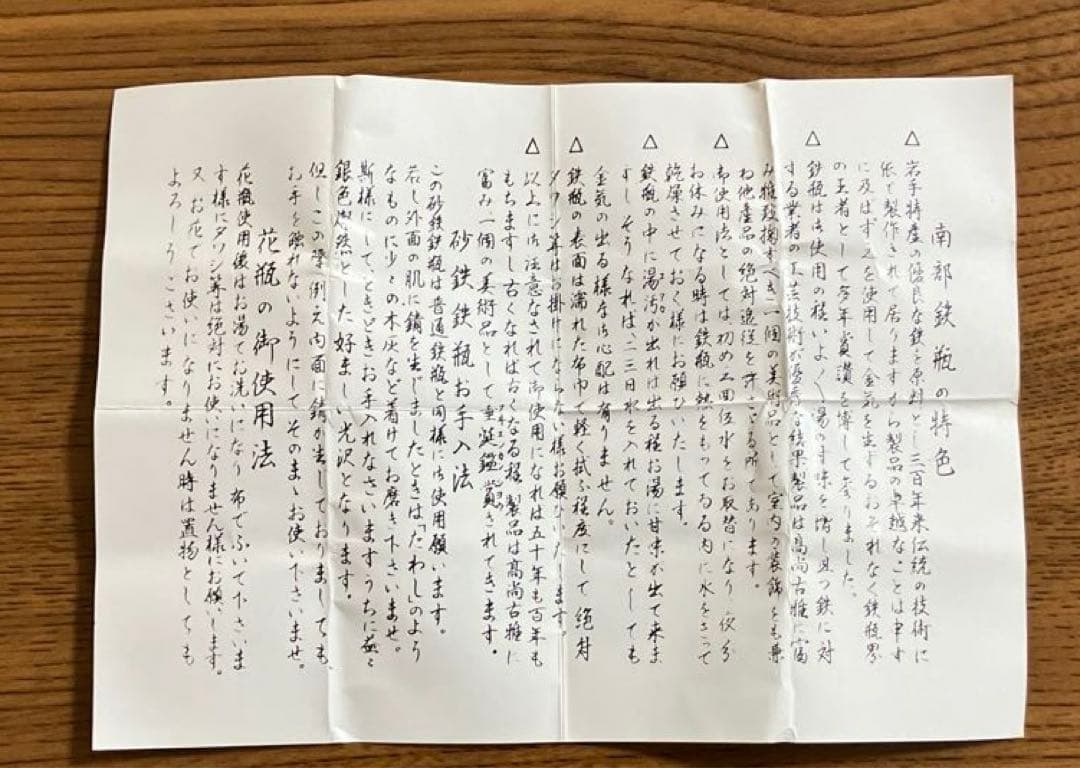 南部鉄瓶の特色
△ 岩手特産の優良な鉄を原料とし三百年来伝統の技術に
依て製作されて居りますから製品の卓越なことは申す
に及ばず之を使用して金気を生ずるおそれなく鉄瓶界
の王者として多年賞讃を博して参りました。
△ 鉄瓶は御使用の程いよ〱湯のす味を増し且つ鉄に対
する業者の工芸技術が優秀な結果製品は高尚古雅に富
み推奨掬すべき一個の美術品として室内の装飾をも兼
ね他産品の絶対追従を許さざる所であります。
△ 御使用法としては初め二三回位水をお取替になり夜分
お休みになる時は鉄瓶に熱をもってゐる内に水をさって
乾燥させておく様にお願ひいたします。
△ 鉄瓶の中に湯汚が出れば出る程お湯に甘味が出て来ま
すしそうなれば、二三日水を入れておいたとしても
金気の出る様な御心配は有りません。
△ 鉄瓶の表面は濡れた布巾で軽く拭ふ程度にして絶対
タワシ等はお掛けにならない様お願ひいたします。
△ 以上に御注意なされて御使用になれば五十年も百年も
もちますし古くなれば古くなる程製品は高尚古雅に
富み一個の美術品として垂涎鑑賞されてきます。
砂鉄鉄瓶お手入法
この砂鉄鉄瓶は普通鉄瓶と同様に御使用願います。
若し外面の肌に錆を生じましたときは「たわし」のよう
なものに少々の木灰など着けてお磨き下さいませ。
斯様にして、ときどきお手入れなさいますうちに益々
銀色燦然とした好ましい光沢となります。
但しこの際例え内面に錆が生じておりましても、
お手を触れないようにしてそのまゝお使い下さいませ。
花瓶の御使用法
花瓶使用後はお湯でお洗いになり布でふいて下さいま
す様にタワシ等は絶対にお使いになりません様にお願いします。
又お花でお使いになりません時は置物としても
よろしうございます。